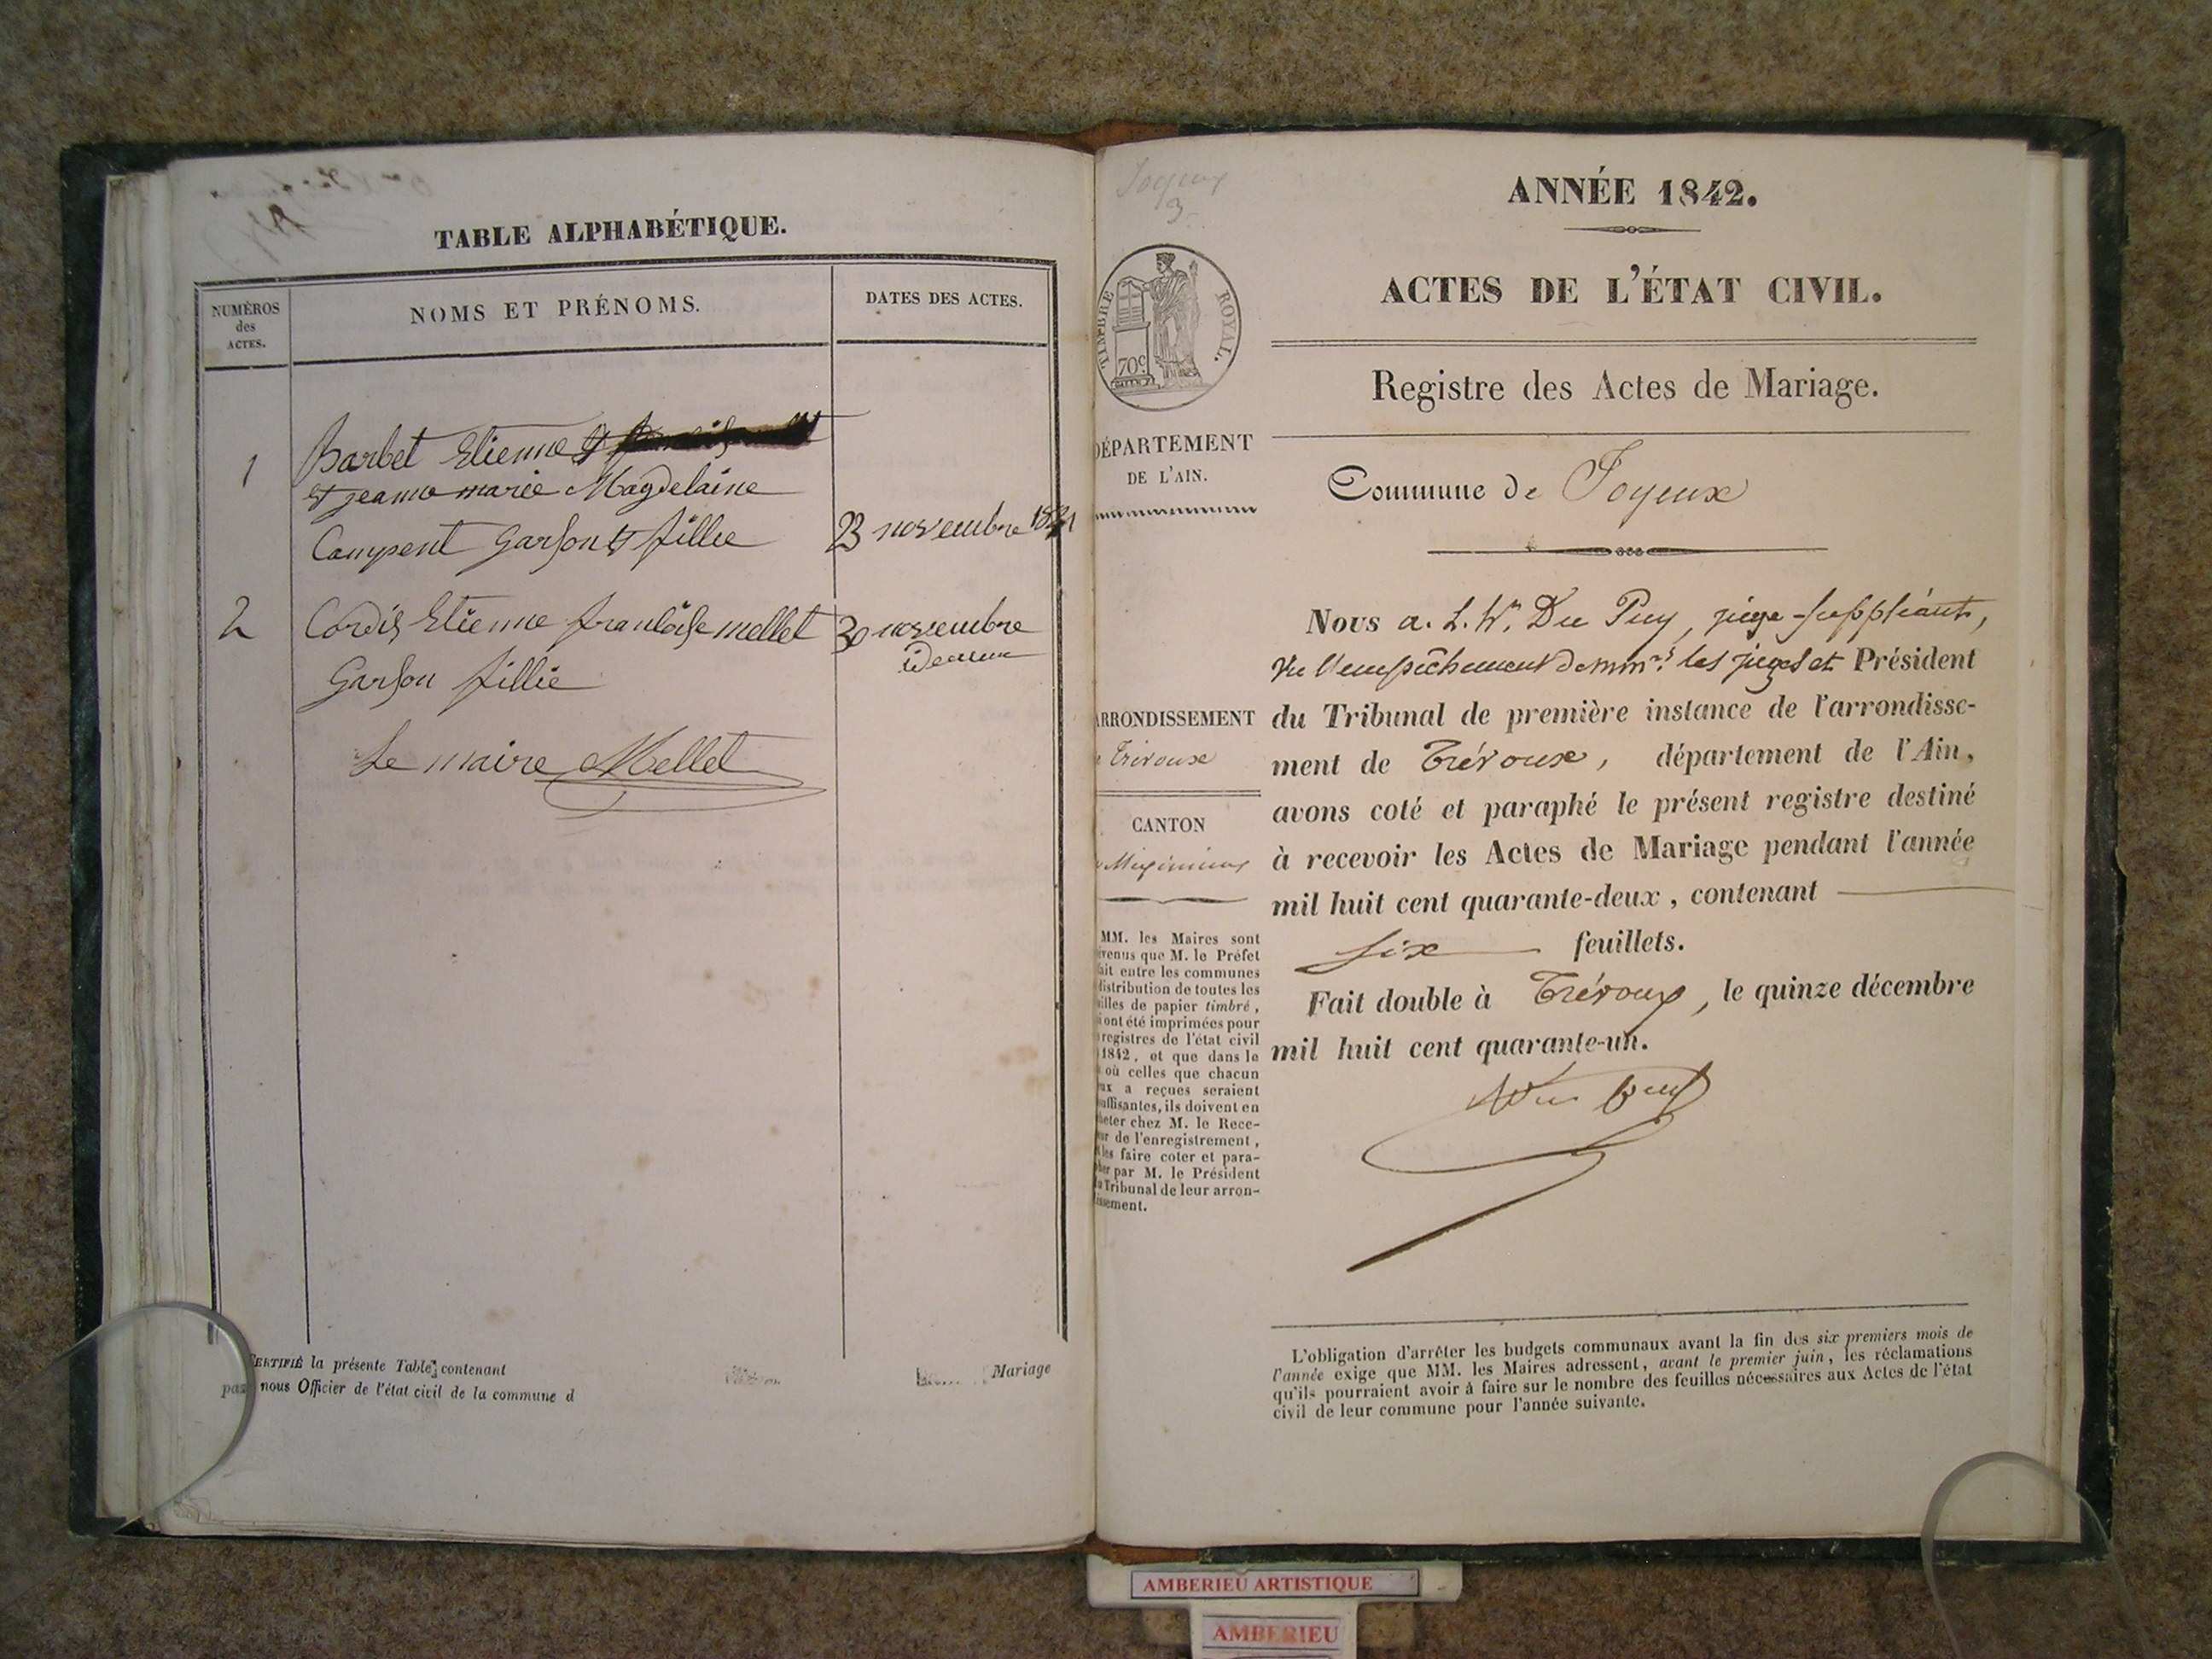 TABLE ALPHABÉTIQUE.
NUMÉROS
des
ACTES.
NOMS ET PRÉNOMS.
DATES DES ACTES.
1
Barbet Etienne
et jeanne marie Magdelaine
Campent Garson et fillie
23 novembre 1841
2
Cordis Etienne franloise mellet
30 novembre
Garson fillie
Le maire Mellet
CERTIFIÉ la présente Table contenant
Mariage
par nous Officier de l'état civil de la commune d
Joyeux
3
ANNÉE 1842.
ACTES DE L'ÉTAT CIVIL.
TIMBRE ROYAL.
70c
Registre des Actes de Mariage.
DÉPARTEMENT
DE L'AIN.
Commune de Joyeux
Nous a. L. Wm. Du Puy, juge-suppléant,
Vu l'empêchement de mm.rs les juges et Président
du Tribunal de première instance de l'arrondisse-
ment de Trévoux, département de l'Ain,
avons coté et paraphé le présent registre destiné
à recevoir les Actes de Mariage pendant l'année
mil huit cent quarante-deux, contenant
six feuillets.
Fait double à Trévoux, le quinze décembre
mil huit cent quarante-un.
ARRONDISSEMENT
Trévoux
CANTON
Meximieux
MM. les Maires sont
venus que M. le Préfet
ait entre les communes
distribution de toutes les
illes de papier timbré,
ont été imprimées pour
registres de l'état civil
1842, et que dans le
où celles que chacun
ux a reçues seraient
uffisantes, ils doivent en
heter chez M. le Rece-
ur de l'enregistrement,
les faire coter et para-
pher par M. le Président
Tribunal de leur arron-
issement.
L'obligation d'arrêter les budgets communaux avant la fin des six premiers mois de
l'année exige que MM. les Maires adressent, avant le premier juin, les réclamations
qu'ils pourraient avoir à faire sur le nombre des feuilles nécessaires aux Actes de l'état
civil de leur commune pour l'année suivante.
AMBERIEU ARTISTIQUE
AMBERIEU